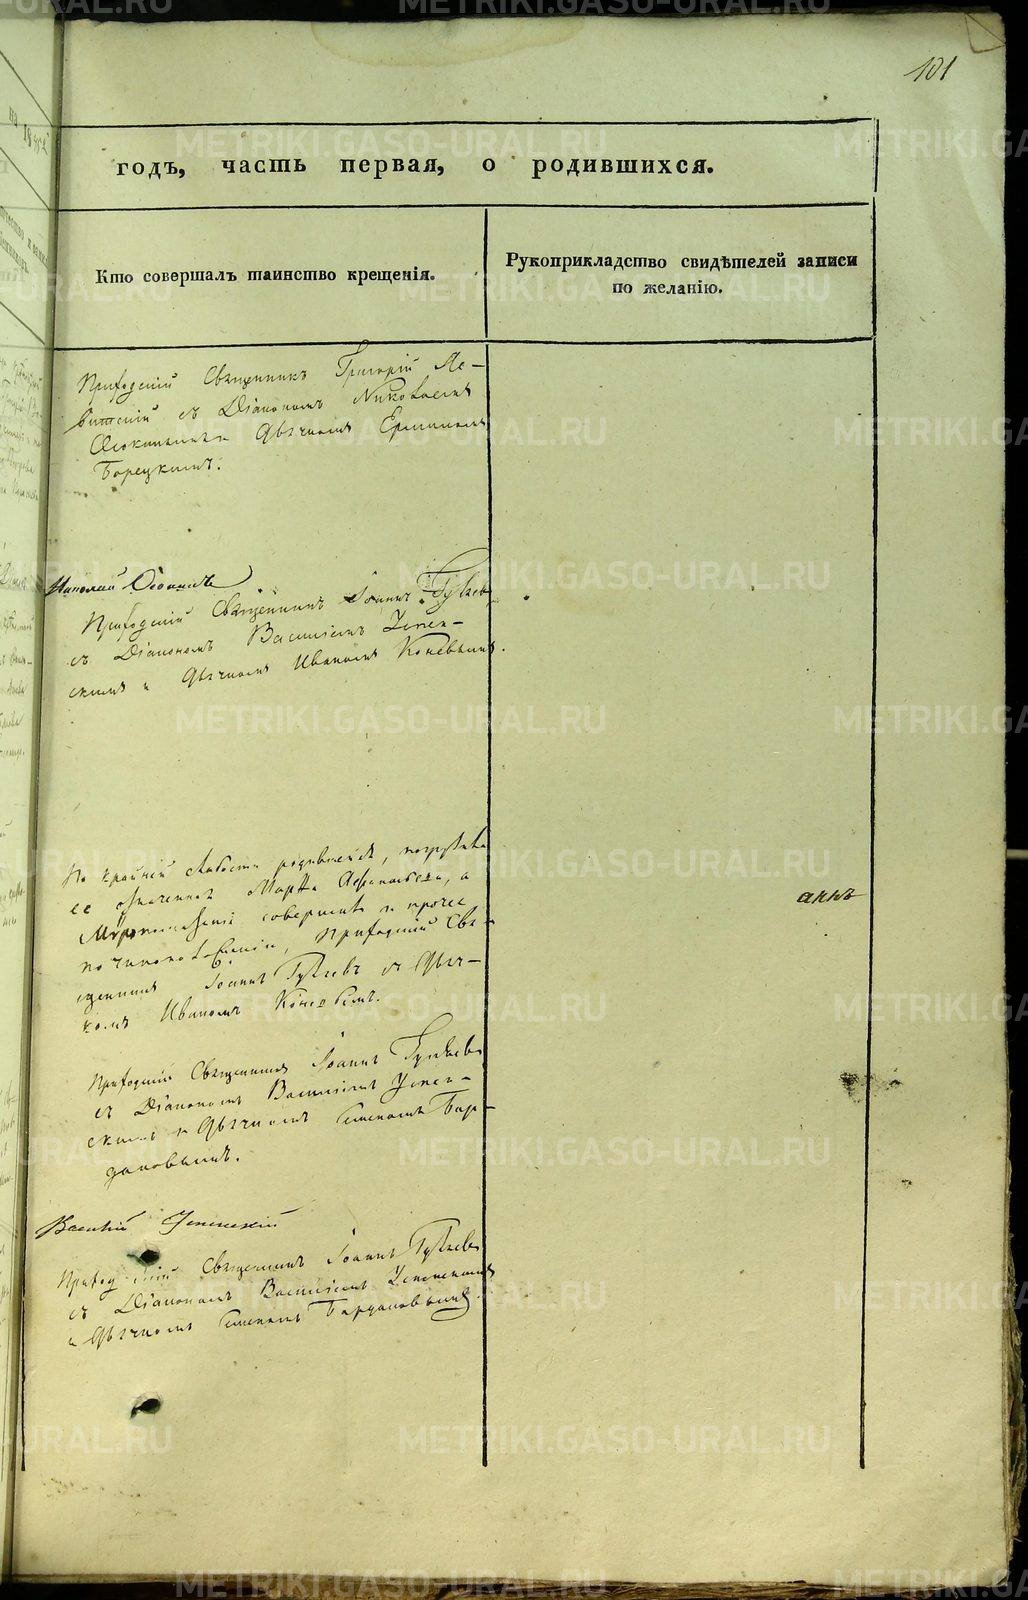 101
годъ, часть первая, о родившихся.
Кто совершалъ таинство крещенія.
Рукоприкладство свидѣтелей записи
по желанію.
Приходскій Священникъ Григорій Ле-
витскій съ Діакономъ Николаемъ
Дьячкомъ
Борецкимъ.
Николай
Приходскій Священникъ Іоаннъ Гуляевъ
съ Діакономъ Василіемъ Успен-
скимъ и Дьячкомъ Иваномъ Коневымъ.
По крайней слабости родившейся, погружала
ее означенная Марфа Афанасьева, а
Миропомазаніе совершилъ и прочее
по чиноположенію, Приходскій Свя-
щенникъ Іоаннъ Гуляевъ съ Дьяч-
комъ Иваномъ Коневымъ.
Приходскій Священникъ Іоаннъ Гуляевъ
съ Діакономъ Василіемъ Успен-
скимъ и Дьячкомъ Симеономъ Бор-
дановымъ.
Василій Успенскій
Приходскій Священникъ Іоаннъ Гуляевъ
съ Діакономъ Василіемъ Успенскимъ
и Дьячкомъ Симеономъ Бордановымъ.
METRIKI.GASO-URAL.RU